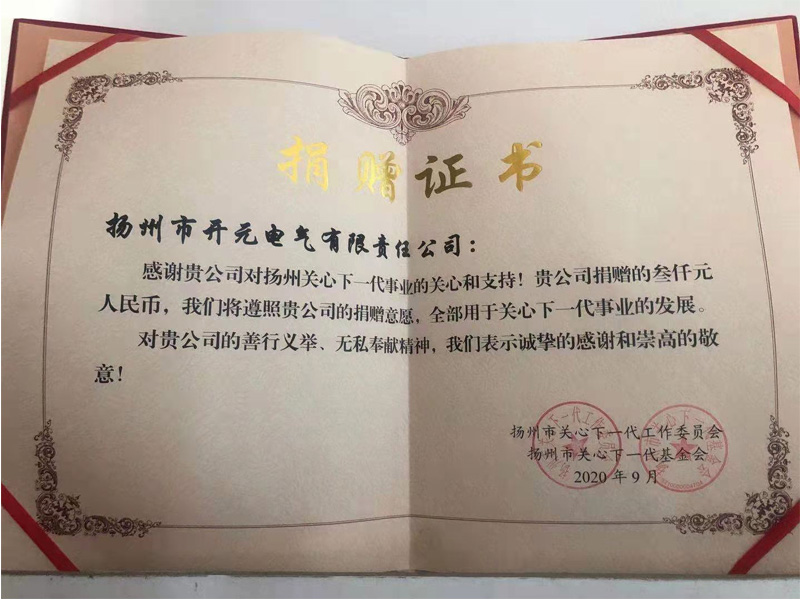 捐赠证书
扬州市开元电气有限责任公司：
感谢贵公司对扬州关心下一代事业的关心和支持！贵公司捐赠的叁仟元
人民币，我们将遵照贵公司的捐赠意愿，全部用于关心下一代事业的发展。
对贵公司的善行义举、无私奉献精神，我们表示诚挚的感谢和崇高的敬
意！
扬州市关心下一代工作委员会
扬州市关心下一代基金会
2020 年 9 月